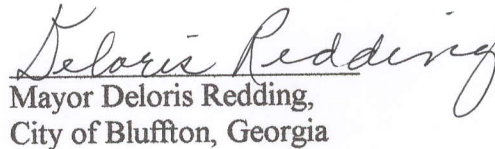 Deloris Redding
Mayor Deloris Redding,
City of Bluffton, Georgia